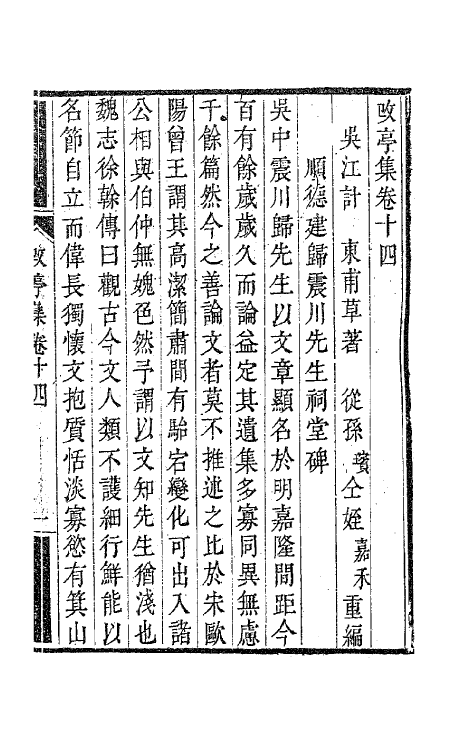 改亭集卷十四
吳江計　東甫草著　從孫璸仝姪嘉禾重編
順德建歸震川先生祠堂碑
吳中震川歸先生以文章顯名於明嘉隆間距今
百有餘歲歲久而論益定其遺集多寡同異無慮
千餘篇然今之善論文者莫不推述之比於宋歐
陽曾王謂其高潔簡肅間有駘宕變化可出入諸
公相與伯仲無媿色然予謂以文知先生猶淺也
魏志徐幹傳曰觀古今文人類不護細行鮮能以
名節自立而偉長獨懷文抱質恬淡寡慾有箕山
改亭集卷十四
一